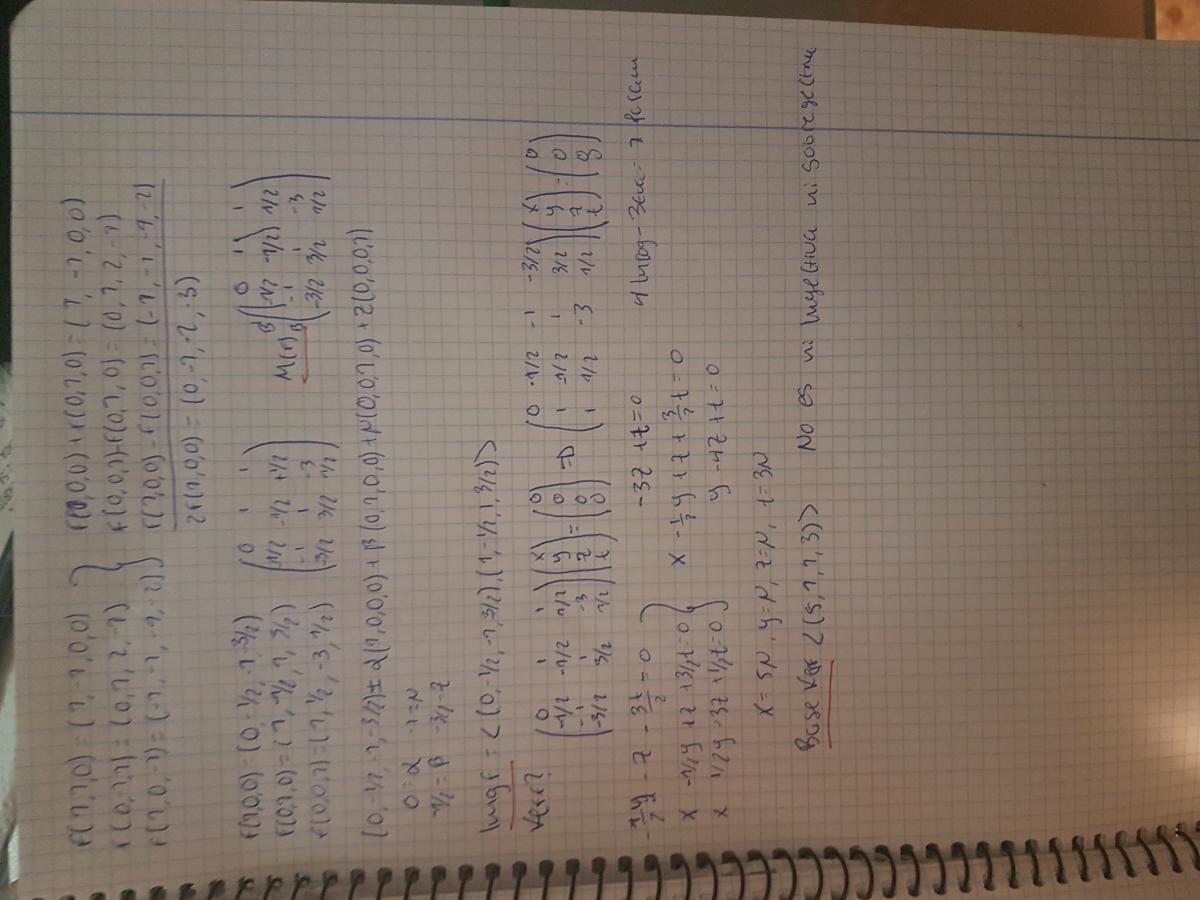 f(1,1,0) = (1,-1,0,0) } f(1,0,0)+f(0,1,0) = (1,-1,0,0)
f(0,1,1) = (0,1,2,-1) f(0,0,1)+f(0,1,0) = (0,1,2,-1)
f(1,0,-1) = (-1,-1,-1,-2) f(1,0,0)-f(0,0,1) = (-1,-1,-1,-2)
2f(1,0,0) = (0,-1,-2,-3)
f(1,0,0) = (0,-1/2,-1,-3/2) (0 1 1
f(0,1,0) = (1,-1/2,1,3/2) -1/2 -1/2 +1/2
f(0,0,1) = (1,1/2,-3,1/2) -1 1 -3
-3/2 3/2 1/2)
M(f)B B' (0 1 1
-1/2 -1/2 1/2
-1 1 -3
-3/2 3/2 1/2)
(0,-1/2,-1,-3/2) = α(1,0,0,0) + β(0,1,0,0) + μ(0,0,1,0) + z(0,0,0,1)
0=α -1=μ
-1/2=β -3/2=z
Imgf = <(0,-1/2,-1,3/2),(1,-1/2,1,3/2)>
Kerf?
(0 1 1
-1/2 -1/2 1/2
-1 1 -3
-3/2 3/2 1/2) (x y z t) = (0 0 0 0) => (0 -1/2 -1 -3/2
1 -1/2 1 3/2
1 1/2 -3 1/2) (x y z t) = (0 0 0)
-1/2y - z - 3t/2 = 0 } -3z + t = 0 4 incog - 3 ecu = 1 param
x -1/2y + z + 3/2t = 0 x - 1/2y + z + 3/2t = 0
x 1/2y -3z + 1/2t = 0 y - 4z + t = 0
x = 5μ, y = μ, z = μ, t = 3μ
Base Kerf <(5,1,1,3)> No es ni inyectiva ni sobreyectiva